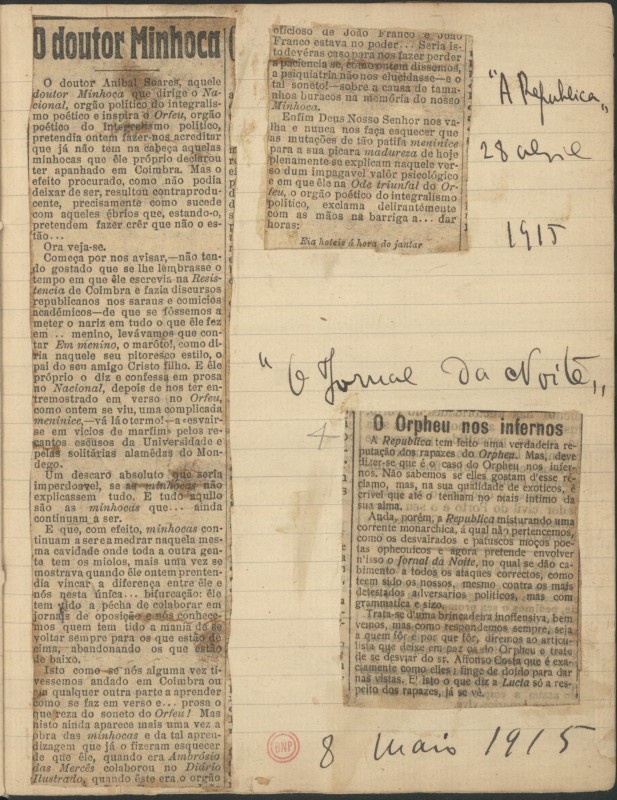 O doutor Minhoca
O doutor Anibal Soares, aquele
doutor Minhoca que dirige o Na-
cional, orgão político do integralis-
mo poético e inspira o Orfeu, orgão
poético do Integralismo político,
pretendia ontem fazer-nos acreditar
que já não tem na cabeça aquelas
minhocas que êle próprio declarou
ter apanhado em Coimbra. Mas o
efeito procurado, como não podia
deixar de ser, resultou contraprodu-
cente, precisamente como sucede
com aqueles ébrios que, estando-o,
pretendem fazer crêr que não o es-
tão...
Ora veja-se.
Começa por nos avisar,—não ten-
do gostado que se lhe lembrasse o
tempo em que êle escrevia na Resis-
tencia de Coimbra e fazia discursos
republicanos nos saraus e comícios
académicos—de que se fôssemos a
meter o nariz em tudo o que êle fez
em... menino, levávamos que con-
tar Em menino, o marôto!, como di-
ria naquele seu pitoresco estilo, o
pai do seu amigo Cristo filho. E êle
próprio o diz e confessa em prosa
no Nacional, depois de nos ter en-
tremostrado em verso no Orfeu,
como ontem se viu, uma complicada
meninice,—vá lá o termo!—a esvair-
se em vicios de marfim pelos re-
cantos escusos da Universidade e
pelas solitárias alamêdas do Mon-
dego.
Um descaro absoluto que seria
imperdoavel, se as minhocas não
explicassem tudo. E tudo aquilo
são as minhocas que... ainda
continuam a ser.
E que, com efeito, minhocas con-
tinuam a ser e a medrar naquela mes-
ma cavidade onde toda a outra gen-
te tem os miolos, mais uma vez se
mostrava quando êle ontem preten-
dia vincar a diferença entre êle e
nós nesta única... bifurcação: êle
tem tido a pécha de colaborar em
jornais de oposição e nós conhece-
mos quem tem tido a mania de se
voltar sempre para os que estão de
cima, abandonando os que estão
de baixo.
Isto como se nós alguma vez ti-
véssemos andado em Coimbra ou
em qualquer outra parte a aprender
como se faz em verso e... prosa o
que reza do soneto do Orfeu! Mas
nisto ainda aparece mais uma vez a
obra das minhocas e da tal apren-
dizagem que já o fizeram esquecer
de que êle, quando era Ambrósio
das Mercês colaborou no Diário
Ilustrado, quando êste era o orgão
oficioso de João Franco e João
Franco estava no poder... Seria is-
to devéras caso para nos fazer perder
a paciencia se, como ontem dissemos,
a psiquiatria não nos elucidasse—e o
tal soneto!—sobre a causa de tama-
nhos buracos na memória do nosso
Minhoca.
Enfim Deus Nosso Senhor nos va-
lha e nunca nos faça esquecer que
as mutações de tão patifa meninice
para a sua pícara madureza de hoje
plenamente se explicam naquele ver-
so dum impagavel valor psicológico
e em que êle na Ode triunfal do Or-
feu, o orgão poético do integralismo
político, exclama delirantemente
com as mãos na barriga a... dar
horas:
Eia hoteis á hora do jantar
"A Republica"
28 abril
1915
"O Jornal da Noite"
4
O Orpheu nos infernos
A Republica tem feito uma verdadeira re-
putação dos rapazes do Orpheu. Mas, deve
dizer-se que é o caso do Orpheu nos infer-
nos. Não sabemos se elles gostam d'esse re-
clamo, mas, na sua qualidade de exoticos, é
crivel que até o tenham no mais intimo da
sua alma.
Anda, porém, a Republica misturando uma
corrente monarchica, á qual não pertencemos,
como os desvairados e patuscos moços poe-
tas orpheonicos e agora pretende envolver
n'isso o Jornal da Noite, no qual se dão ca-
bimento a todos os ataques correctos, como
teem sido os nossos, mesmo contra os mais
detestados adversarios politicos, mas com
grammatica e sizo.
Trata-se d'uma brincadeira inoffensiva, bem
vemos, mas como respondemos sempre, seja
a quem fôr e por que fôr, diremos ao articu-
lista que deixe em paz os do Orpheu e trate
de se desviar do sr. Affonso Costa que é exa-
ctamente como elles: finge de doido para dar
nas vistas. E' isto o que diz a Lucta só a res-
peito dos rapazes, já se vê.
BNP
8 maio 1915